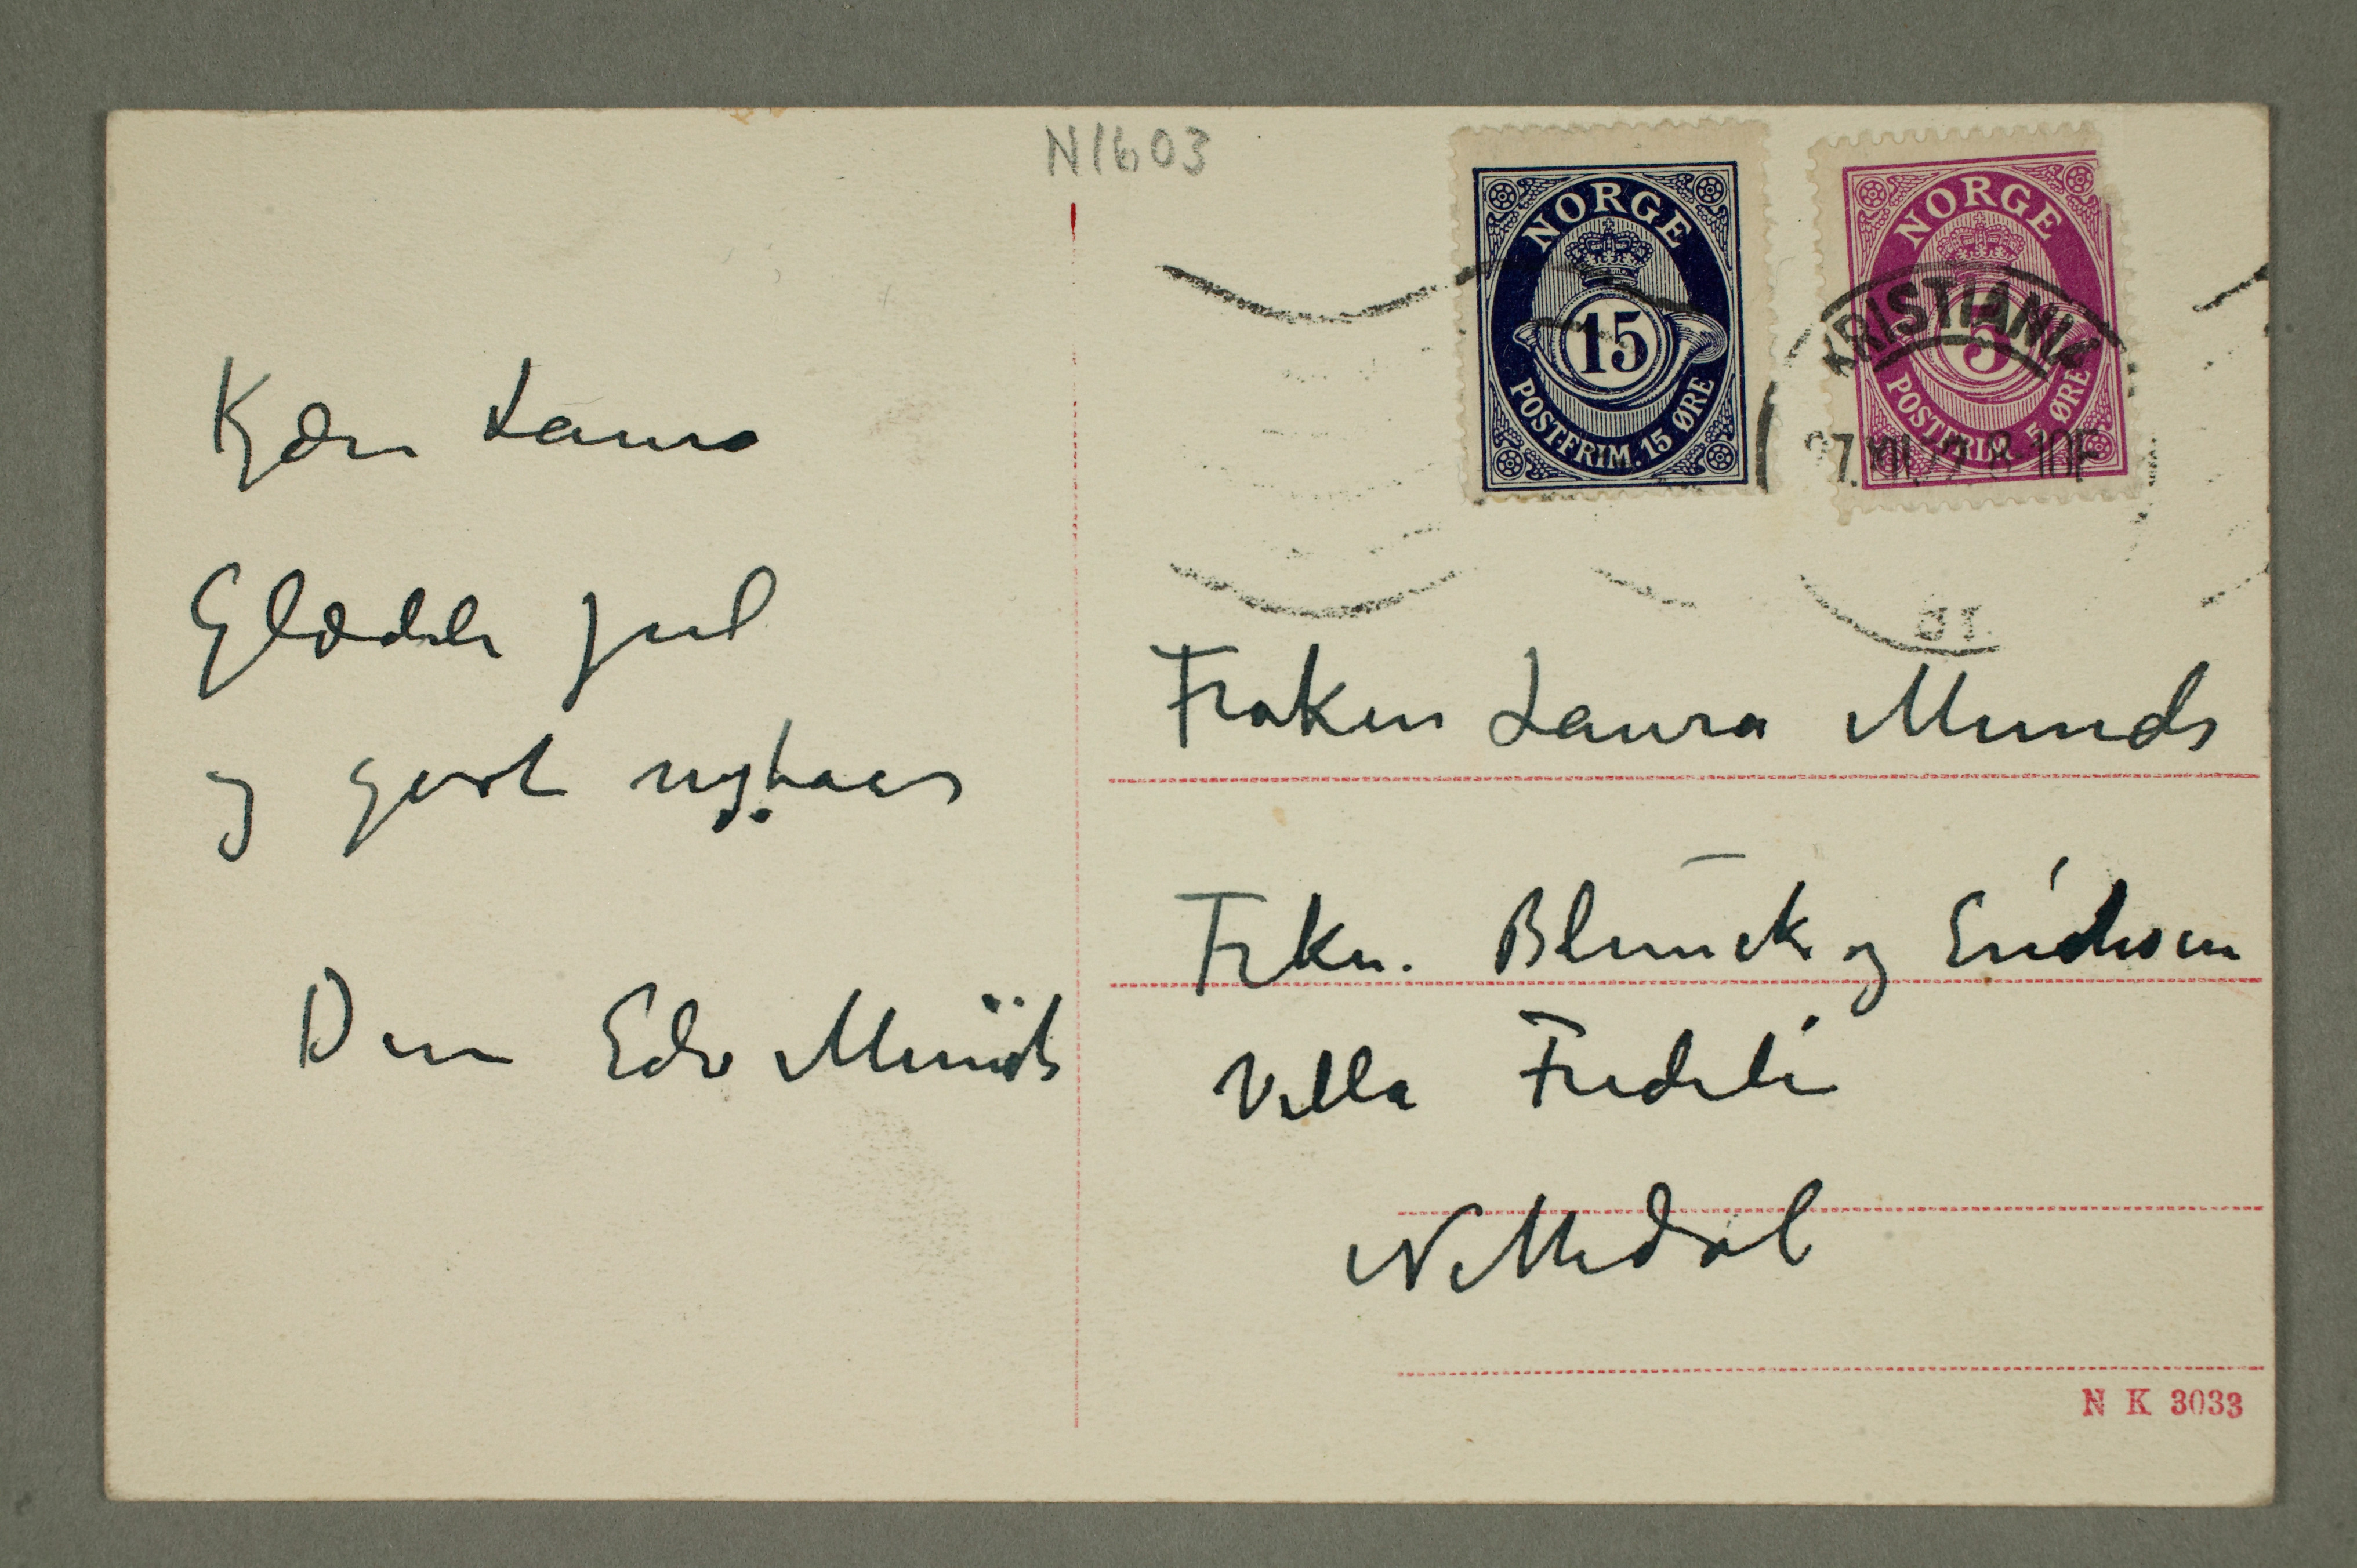 N1603
NORGE
15
POSTFRIM. 15 ØRE
NORGE
5
POSTFRIM. 5 ØRE
KRISTIANIA
7.XII.22 8-10F
Kjære Laura
Glædelig jul
og godt nytaar
Din Edv Munch
Frøken Laura Munch
Frkn. Blunck og Erichsen
Villa Fredeli
Nittedal
N K 3033